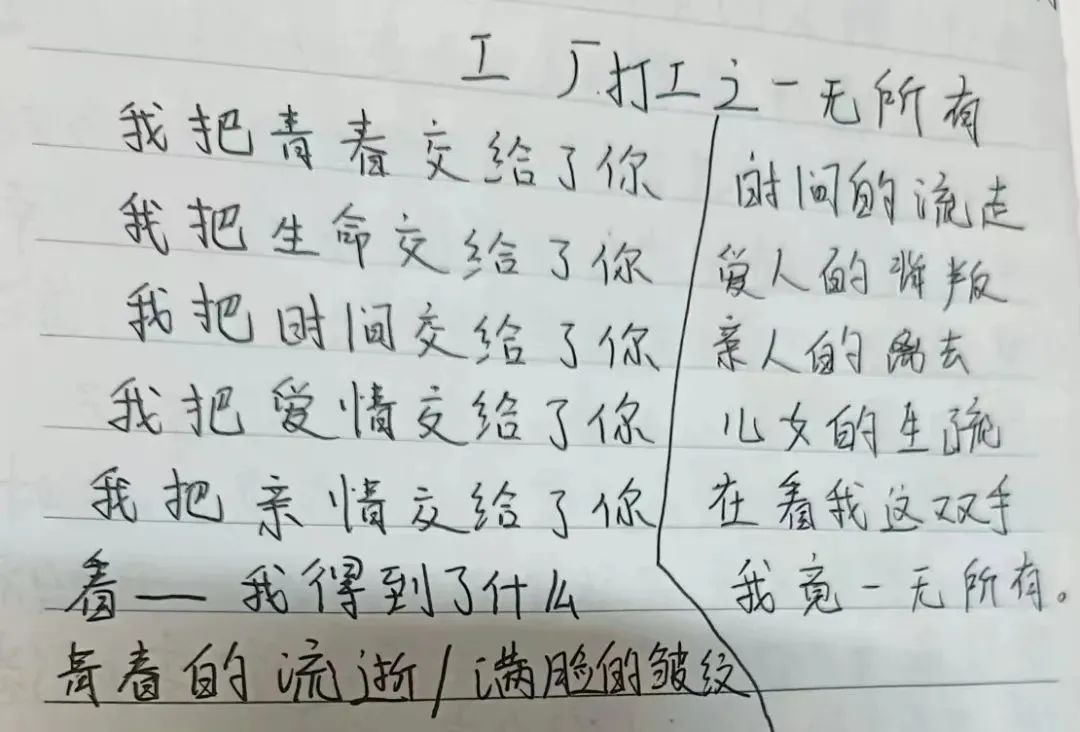 工厂打工之一无所有
我把青春交给了你
我把生命交给了你
我把时间交给了你
我把爱情交给了你
我把亲情交给了你
看——我得到了什么
青春的流逝/满脸的皱纹
时间的流走
爱人的叛
亲人的离去
儿女的生疏
在看我这双手
我竟一无所有。